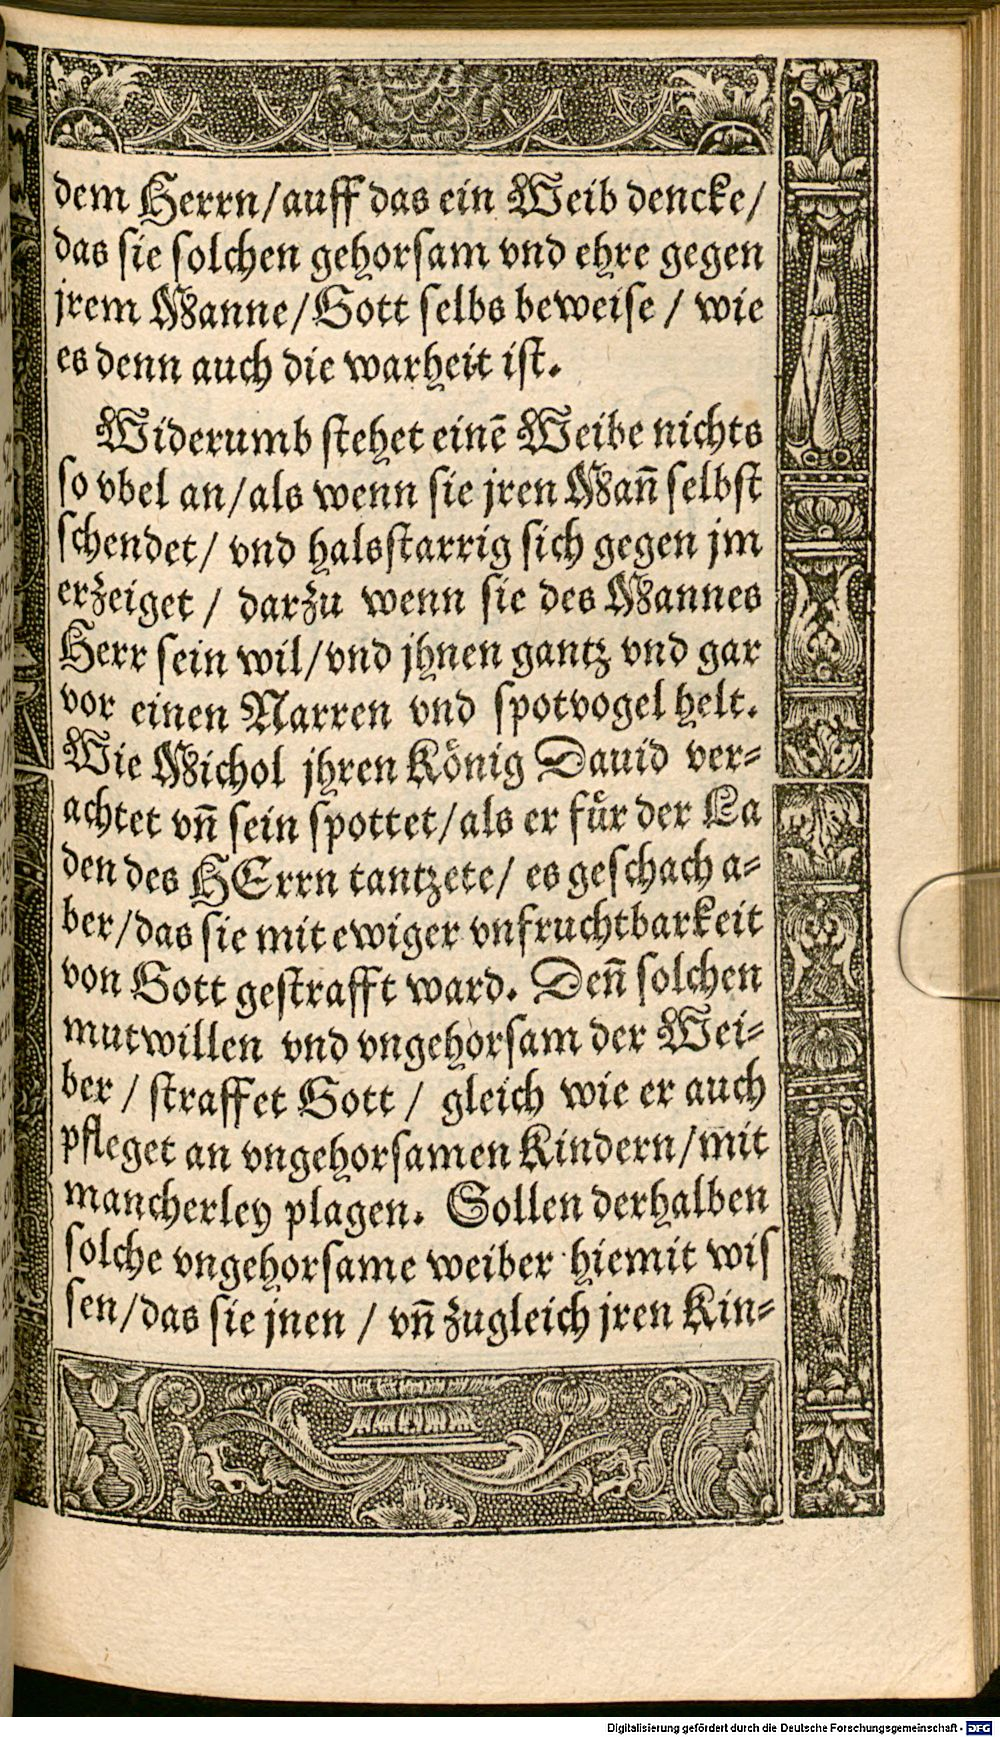 dem Herrn/auff das ein Weib dencke/
das sie solchen gehorsam vnd ehre gegen
jrem Manne/Gott selbs beweise / wie
es denn auch die warheit ist.
Widerumb stehet einē Weibe nichts
so vbel an/als wenn sie jren Mañ selbst
schendet/ vnd halsstarrig sich gegen jm
erzeiget / darzu wenn sie des Mannes
Herr sein wil/vnd jhnen gantz vnd gar
vor einen Narren vnd spotvogel helt.
Wie Michol jhren König Dauid ver-
achtet vñ sein spottet/als er fůr der La
den des HErrn tantzete/ es geschach a-
ber/das sie mit ewiger vnfruchtbarkeit
von Gott gestrafft ward. Deñ solchen
mutwillen vnd vngehorsam der Wei-
ber / straffet Gott / gleich wie er auch
pfleget an vngehorsamen Kindern/mit
mancherley plagen. Sollen derhalben
solche vngehorsame weiber hiemit wis
sen/das sie jnen / vñ zugleich jren Kin-
Digitalisierung gefördert durch die Deutsche Forschungsgemeinschaft - DFG